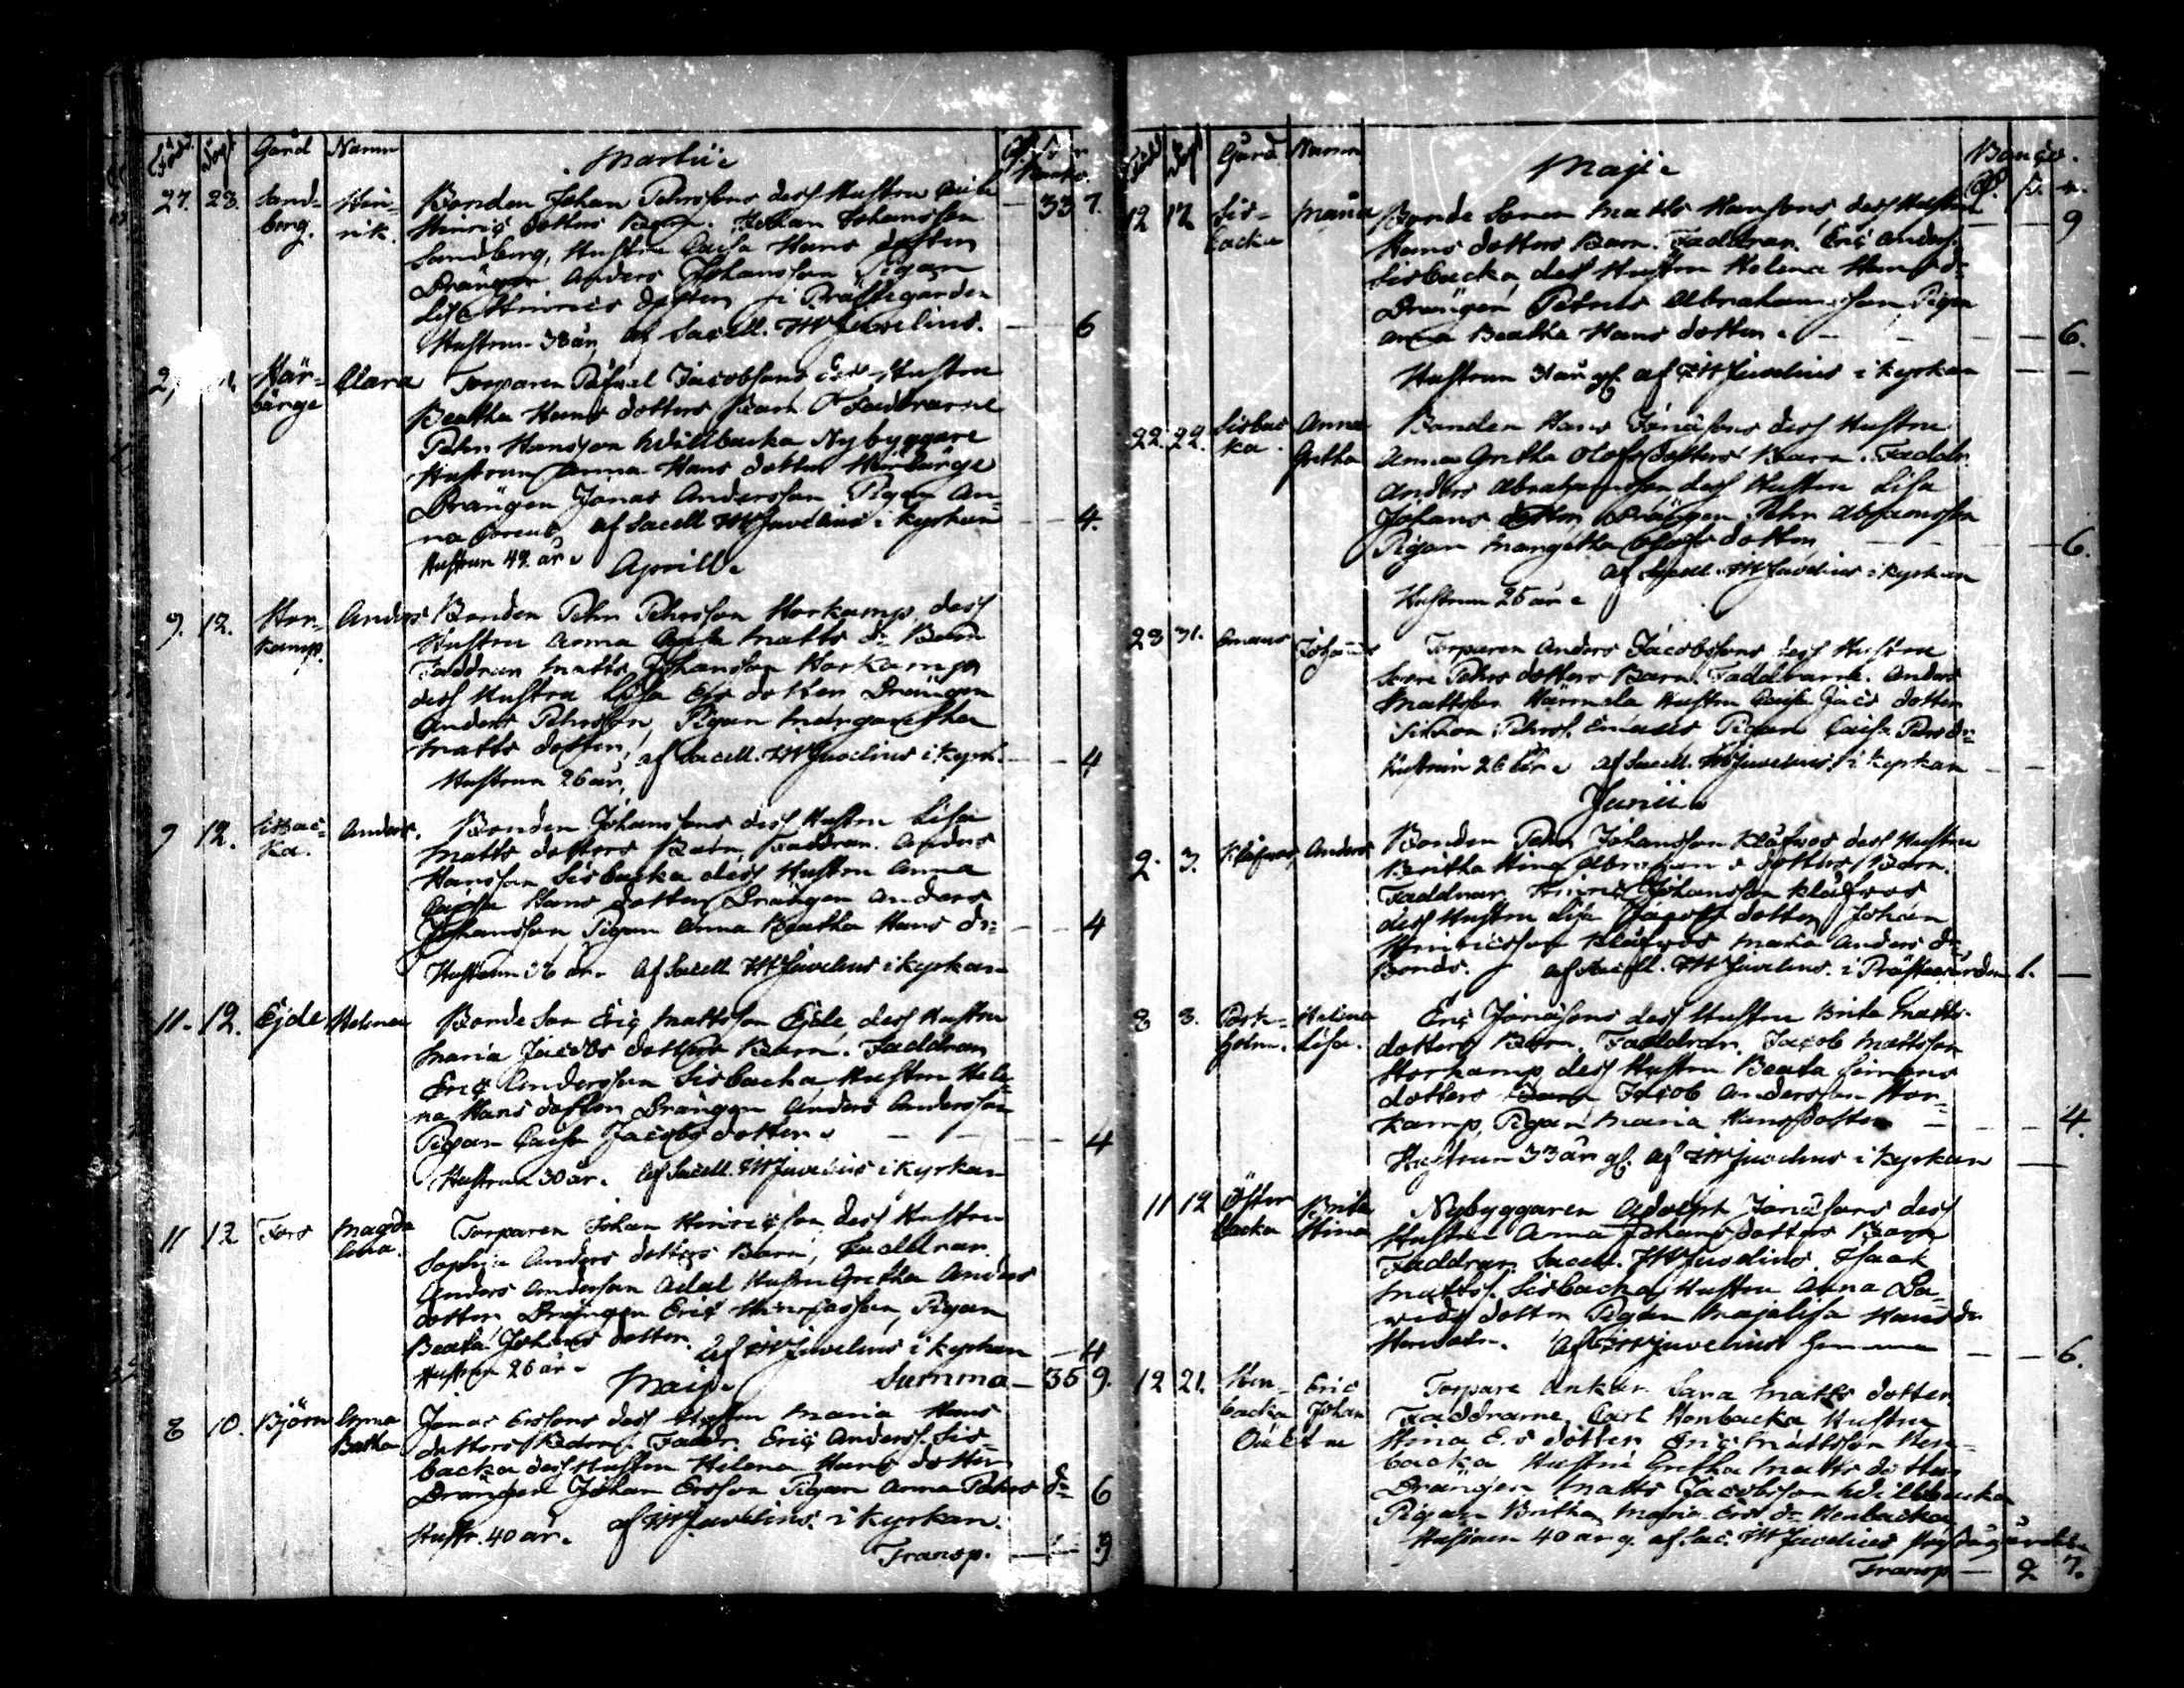 Född Döpt Gård Namn Martii
27. 23. Sand- Hin- Bonden Johan Pehrssons dess Hustru Caisa — 33 7.
berg. rik. Hinrics dotters Barn. Johan Johansson
Sandberg, Hustru Caisa Hans dotter
Drängen Anders Johansson Pigan
Lisa Hinrics dotter i Prästegården
Hustrun 38 år, af Sacell. JW Juvelius. — — 6
Här- Clara Torparen Jacobsons dess Hustru
bärge Beatha Hans dotters Barn Faddrarne
Pehr Hansson Nybyggare
Hustrun Anna Hans dotter Härbärge
Drängen Jonas Andersson Pigan An-
na af Sacell JW Juvelius i kyrkan — — 4.
Hustrun 42 år
Aprill
9. 12. Hor- Anders Bonden Pehr Pehrsson Horkamp dess
kamp. Hustru Anna Caisa Matts dr Barn
Faddran Matts Johansson Horkamp
dess Hustru Lisa Ers dotter Drängen
Anders Pehrsson, Pigan Margaretha
Matts dotter, af Sacell. JW Juvelius i kyrk. — — 4
Hustrun 26 år,
9 12. Sisbac- Anders. Bonden Johanssons dess Hustru Lisa
ka. Matts dotters Barn, Faddran. Anders
Hansson Sisbacka dess Hustru Anna
Caisa Hans dotter Drängen Anders
Johansson, Pigan Anna Beatha Hans dr — — 4
Hustrun 36 år. Af Sacell JW Juvelius i kyrkan
11. 12. Ejde Helena Bonde Son Eric Mattsson Ejde, dess Hustru
Maria Jacobs dotters Barn. Faddran
Eric Andersson Sisbacka, Hustru Hele-
na Hans dotter Drängen Anders Andersson
Pigan Caisa Jacobs dotter — — 4
Hustrun 30 år. Af Sacell. JW Juvelius i kyrkan
11 12 Fors Magda Torparen Johan Hinricsson, dess Hustru
lena. Sophia Anders dotters Barn, Faddrar.
Anders Andersson Adal Hustru Gretha Anders
dotter Drängen Eric Hinricsson, Pigan
Beata Johans dotter. af JW Juvelius i kyrkan — 4
Hustrun 26 år
Maji Summa — 35 9.
8 10. Björn Anna Jonas Erssons dess Hustru Maria Hans
Beatha dotters Barn. Faddr. Eric Anderss. Sis-
backa dess Hustru Helena Hans dotter
Drängen Johan Ersson Pigan Anna Pehrs dr 6
Hustr. 40 år. af JW Juvelius i kyrkan.
Transp. — 1 9
Född Döpt Gård Namn Maji Banco.
12 12 Sis- Maria Bonde Sonen Matts Hanssons, dess Hustru — — 9
backa Hans dotters Barn. Faddran. Eric Anders.
Sisbacka, dess Hustru Helena Hans dr
Drängen Petrus Abrahamsson, Pigan
Anna Beatha Hans dotter — — 6.
Hustrun 31 år gl. af JW Juvelius i kyrkan — —
22. 22. Sisbac Anna Bonden Hans Jonasons dess Hustru
ka. Gretha Anna Gretha Olofs dotters Barn. Faddr.
Anders Abrahamsson dess Hustru Lisa
Johans dotter Drängen Pehr Abrahamsson
Pigan Margetha Olofs dotter — — 6.
af Sacell. JW Juvelius i kyrkan
Hustrun 25 år
23 31. Emaus Johannes Torparen Anders Jacobssons dess Hustru
Pehrs dotters Barn. Faddrarne. Anders
Mattsson Härmäla Hustru Caisa Jacs dotter
Simon Pehrs. Emaus Pigan Caisa Pehrs dr
Hustrun 26 år af Sacell. JW Juvelius i kyrkan — —
Junii
2. 3. Klåfvus, Anders Bonden Pehr Johansson Klåfvus dess Hustru
Britha Hina Abraham s dotters Barn.
Faddrar, Hinric Johansson Klåfvus
dess Hustru Lisa Jacobs dotter Johan
Hinricsson Klåfvus Maria Anders dr
Bonds. af Sacell. JW Juvelius. i Prästegården 1. —
3 3. Pork- Helena Eric Jonasons dess Hustru Brita Matts.
holm. Lisa. dotters Barn. Faddrar. Jacob Mattsson
Horkamp dess Hustru Beata Simons
dotters Jacob Andersson Hor-
kamp, Pigan Maria Hans dotter — — 4.
Hustrun 33 år gl. af JW Juvelius i kyrkan —
11 12 Öster Brita Nybyggaren Adolph Jonasons dess
backa Hina Hustru Anna Johans dotters Barn
Faddrar. Sacell. JW Juvelius. Isaak
Matts. Sisbacka, Hustru Anna Da-
vids dotter Pigan Majalisa Hans dr
af JW Juvelius hemma — — 6.
12 21. Hen- Eric Torpare Sara Matts dotter
backa Johan Faddrarne, Carl Henbacka Hustru
Oäkta Hina E.s dotter Eric Mattsson Hen-
backa Hustru Gretha Matts dotter
Drängen Matts Jacobsson Willbacka
Pigan Britha Maria Ers dr Henbacka
Hustrun 40 år g. af Sac. JW Juvelius
Transp. — 2 7.